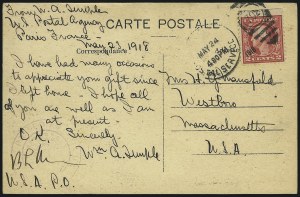 CARTE POSTALE
From W. A. Semple
U.S. Postal Agency
Paris France
May 23, 1918
Correspondance
I have had many occasions
to appreciate your gift since
I left home. I hope all
of you are well as I am
at present.
O.K. Sincerely,
Wm A. Semple
U.S.A. P.O.
MAY 24
4 80 PM
Mrs H. G. Mansfield
Westboro
Massachusetts
U.S.A.